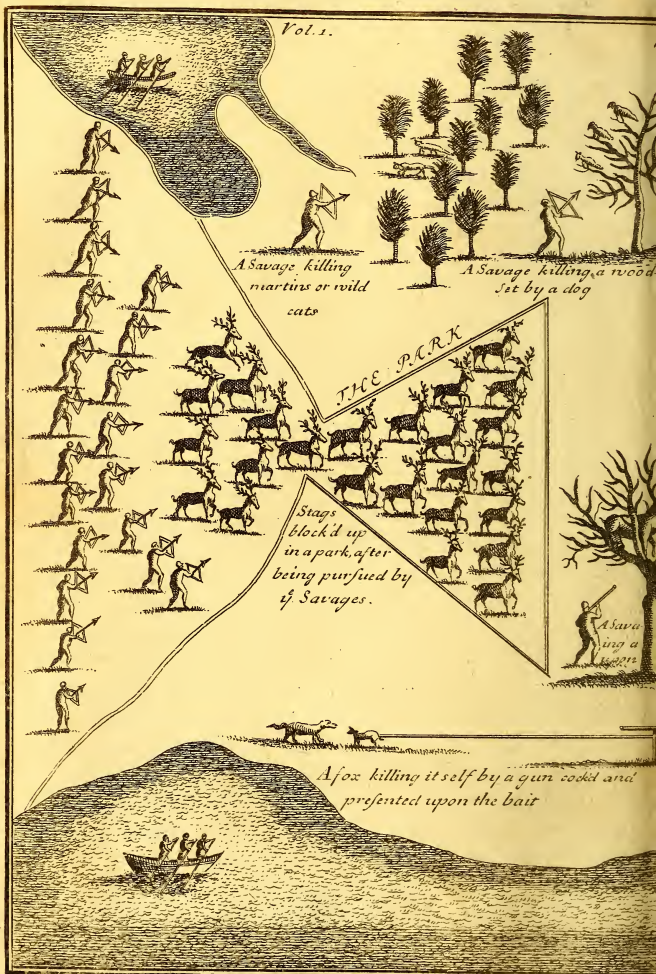 Vol. 1.
A Savage killing
martins or wild
cats
A Savage killing a wood
set by a dog
THE PARK
Stags
block'd up
in a park, after
being pursued by
yͤ Savages.
A Sava
ing a
upon
A fox killing it self by a gun cock'd and
presented upon the bait